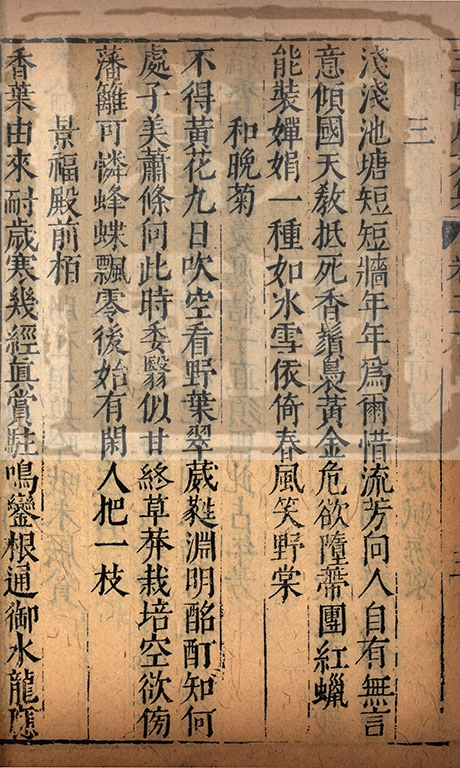 三
淺淺池塘短短牆年年爲爾惜流芳向人自有無言
意傾國天敎抵死香鬚裊黃金危欲墮蔕團紅蠟
能裝嬋娟一種如冰雪依倚春風笑野棠
和晚菊
不得黃花九日吹空看野葉翠葳蕤淵明酩酊知何
處子美蕭條何此時委翳似甘終草莽栽培空欲傍
藩籬可憐蜂蝶飄零後始有閑人把一枝
景福殿前栢
香葉由來耐歲寒幾經眞賞駐鳴鑾根通御水龍應